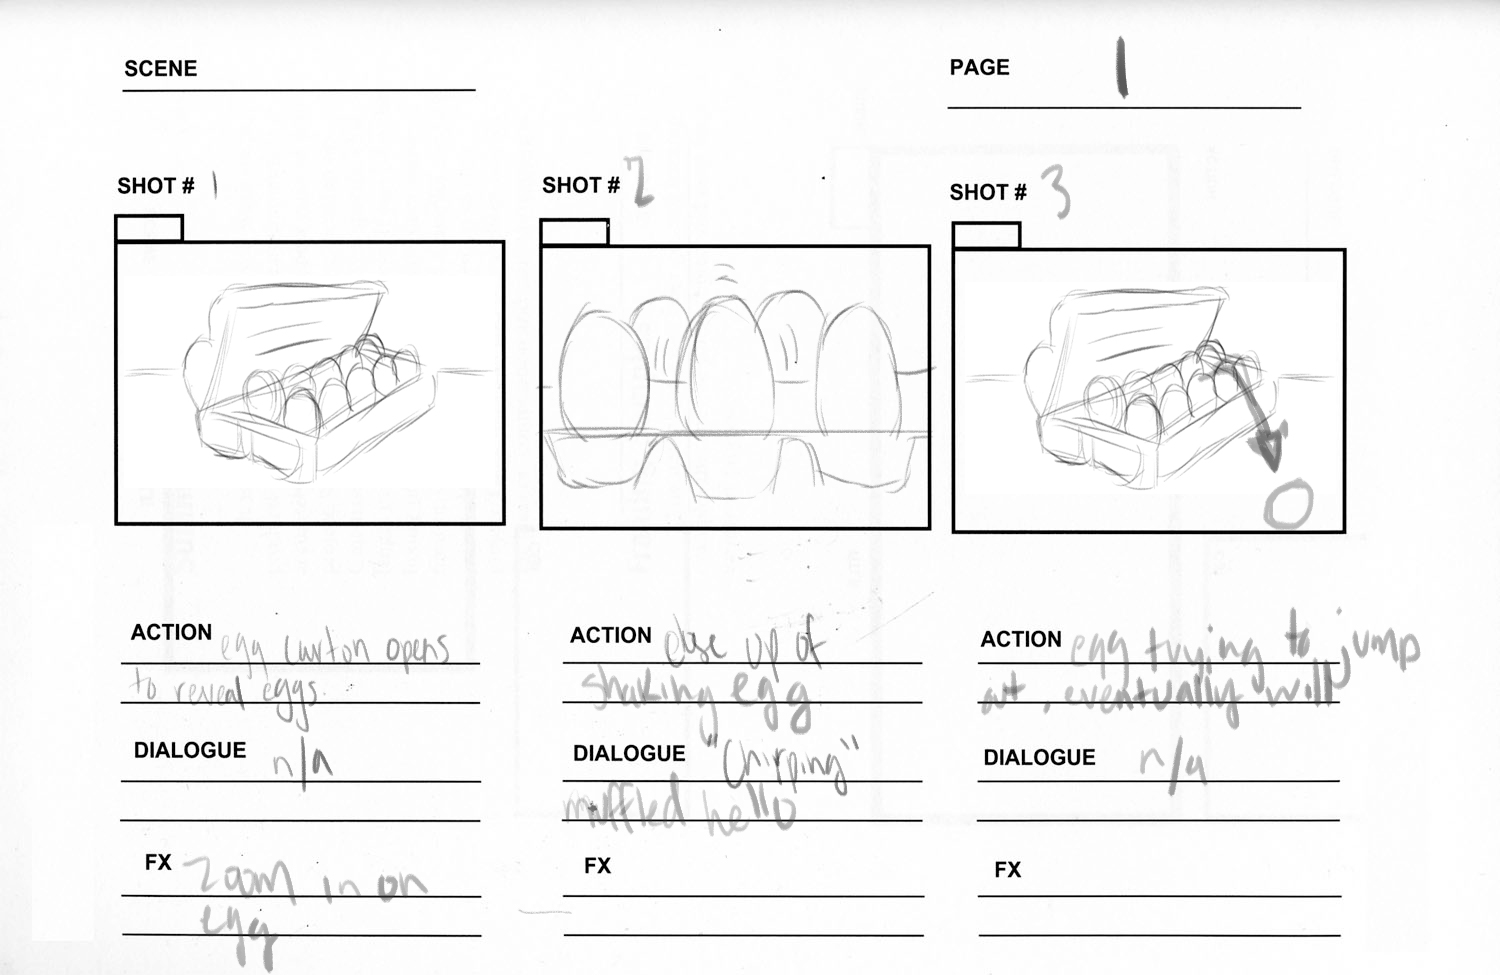 SCENE
PAGE 1
SHOT # 1
SHOT # 2
SHOT # 3
ACTION egg carton opens
to reveal eggs.
DIALOGUE n/a
FX Zoom in on
egg
ACTION close up of
shaking egg
DIALOGUE "Chirping"
muffled hello
FX
ACTION egg trying to jump
out, eventually will
DIALOGUE n/a
FX